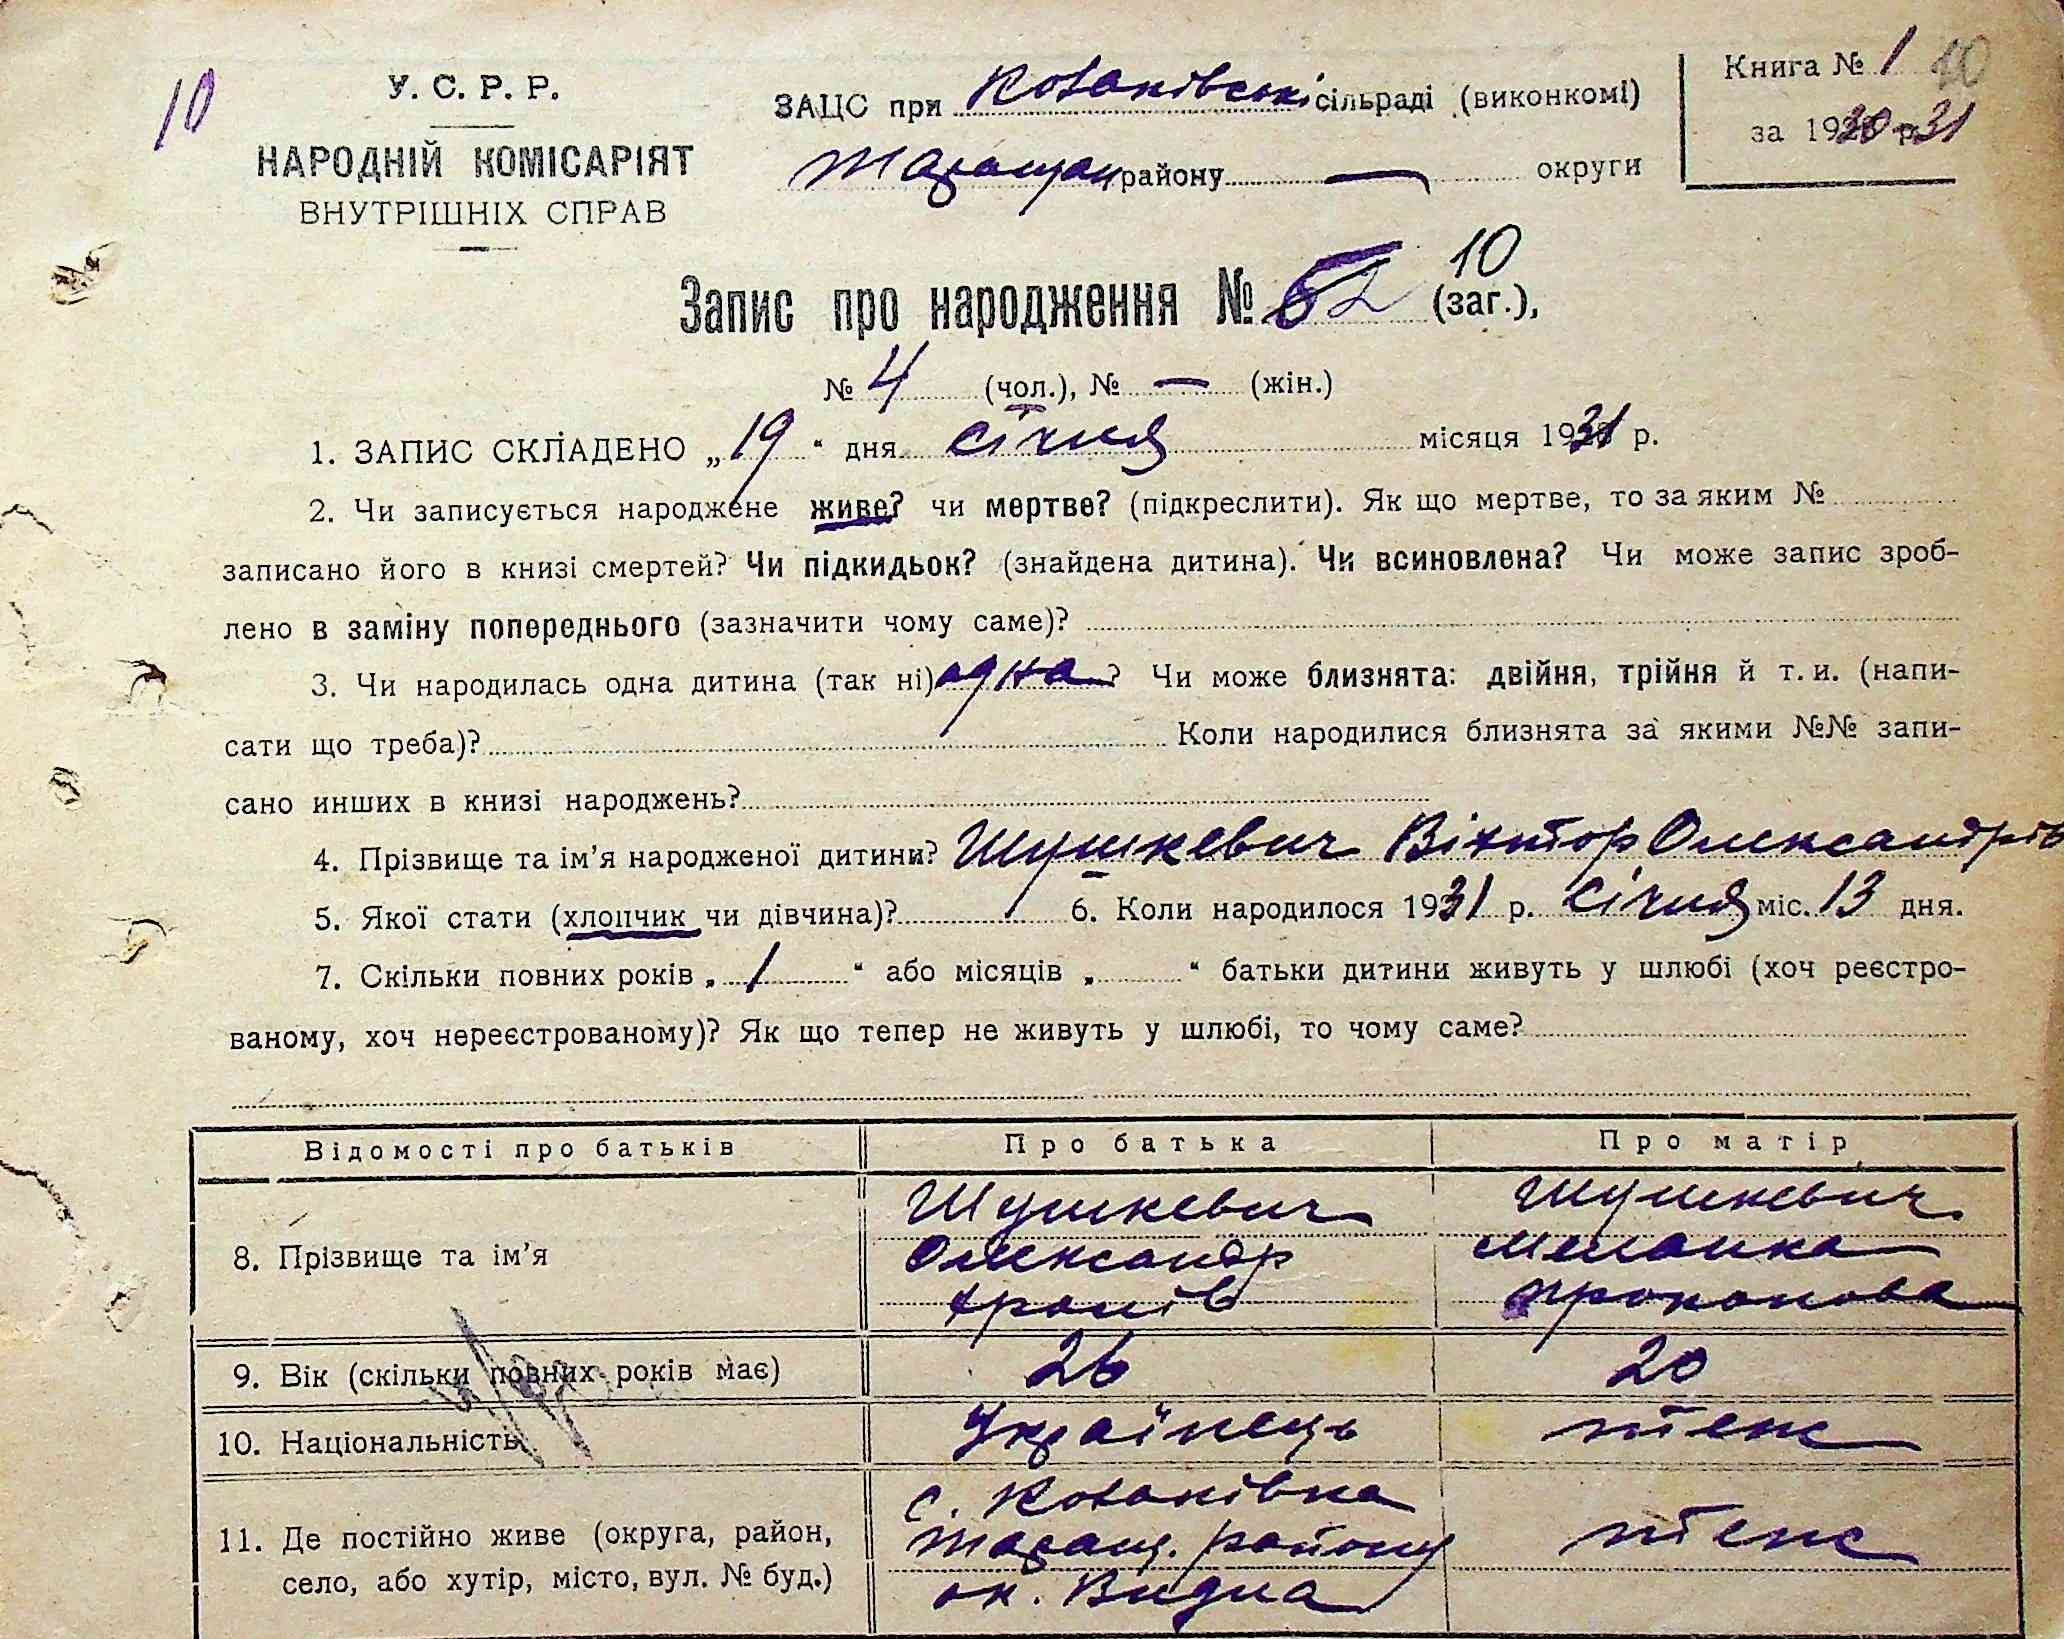 10
У. С. Р. Р.
НАРОДНІЙ КОМІСАРІЯТ
ВНУТРІШНІХ СПРАВ
ЗАЦС при Козаківські сільраді (виконкомі)
Таращан району — округи
Книга № 1 10
за 1930-31
Запис про народження № 52 10 (заг.),
№ 4 (чол.), № — (жін.)
1. ЗАПИС СКЛАДЕНО „19“ дня січня місяця 1931 р.
2. Чи записується народжене живе? чи мертве? (підкреслити). Як що мертве, то за яким №
записано його в книзі смертей? Чи підкидьок? (знайдена дитина). Чи всиновлена? Чи може запис зроб-
лено в заміну попереднього (зазначити чому саме)?
3. Чи народилась одна дитина (так ні) одна? Чи може близнята: двійня, трійня й т. и. (напи-
сати що треба)? Коли народилися близнята за якими №№ запи-
сано инших в книзі народжень?
4. Прізвище та ім’я народженої дитини? Шушкевич Віктор Олександрів
5. Якої стати (хлопчик чи дівчина)? 6. Коли народилося 1931 р. січня міс. 13 дня.
7. Скільки повних років „1“ або місяців „ “ батьки дитини живуть у шлюбі (хоч реєстро-
ваному, хоч нереєстрованому)? Як що тепер не живуть у шлюбі, то чому саме?
Відомості про батьків Про батька Про матір
8. Прізвище та ім’я
Шушкевич
Олександр
Шушкевич
Меланка
Прокопова
9. Вік (скільки повних років має) 26 20
10. Національність Українець теж
11. Де постійно живе (округа, район,
село, або хутір, місто, вул. № буд.)
с. Козаківка
Таращ. району
теж